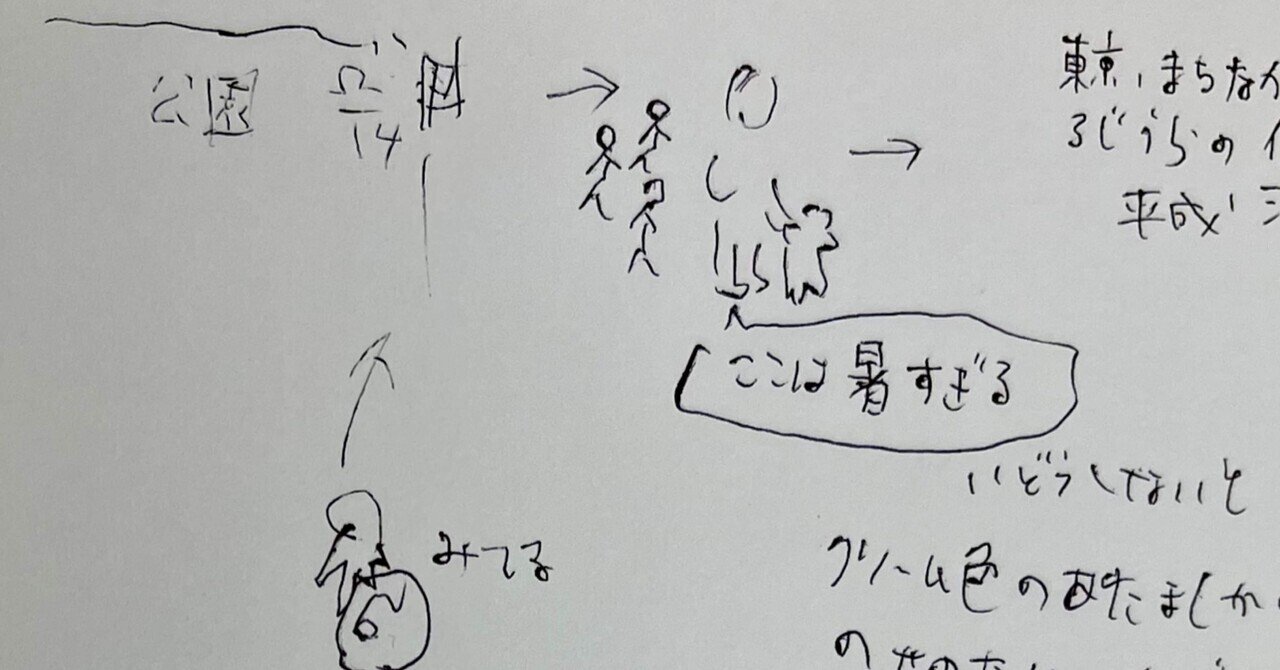 公園
14
東京、まちなか
ろじうらの
平成
ここは暑すぎる
いどうしないと
みてる
クリーム色のあたましか
の